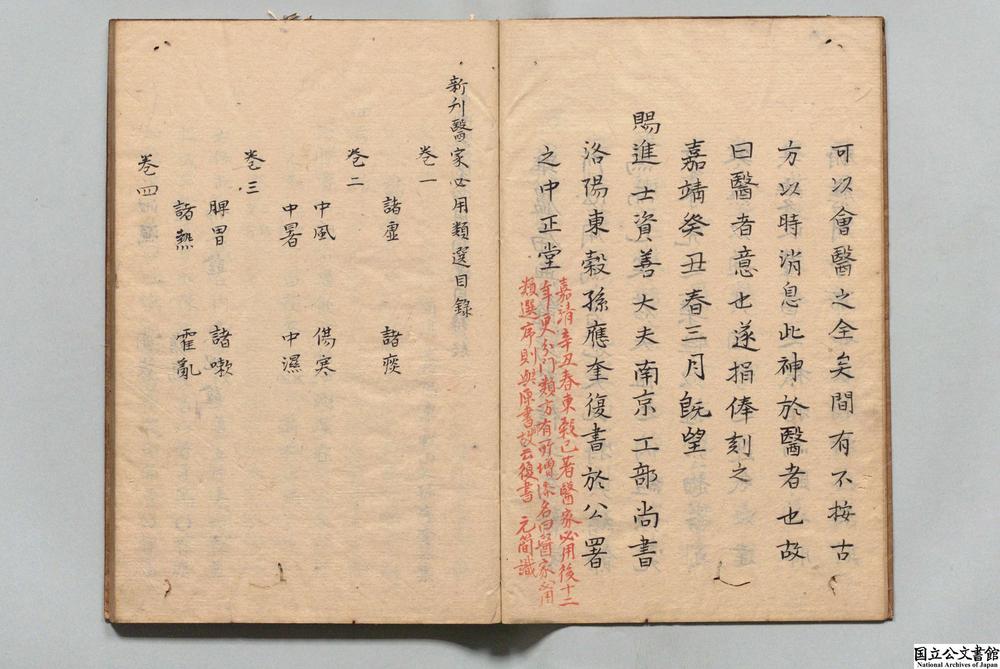 可以會醫之全矣間有不按古
方以時消息此神於醫者也故
曰醫者意也遂捐俸刻之
嘉靖癸丑春三月既望
賜進士資善大夫南京工部尚書
洛陽東穀孫應奎復書於公署
之中正堂
嘉靖辛丑春東穀已著醫家必用後十二
年更分门類方有所增添名曰醫家必用
類選序則與原書故云復書 元簡識
新刋醫家必用類選目錄
卷一
諸虛 諸痰
卷二
中風 傷寒
中暑 中濕
卷三
脾胃 諸嗽
諸熱 霍亂
卷四
国立公文書館
National Archives of Japan